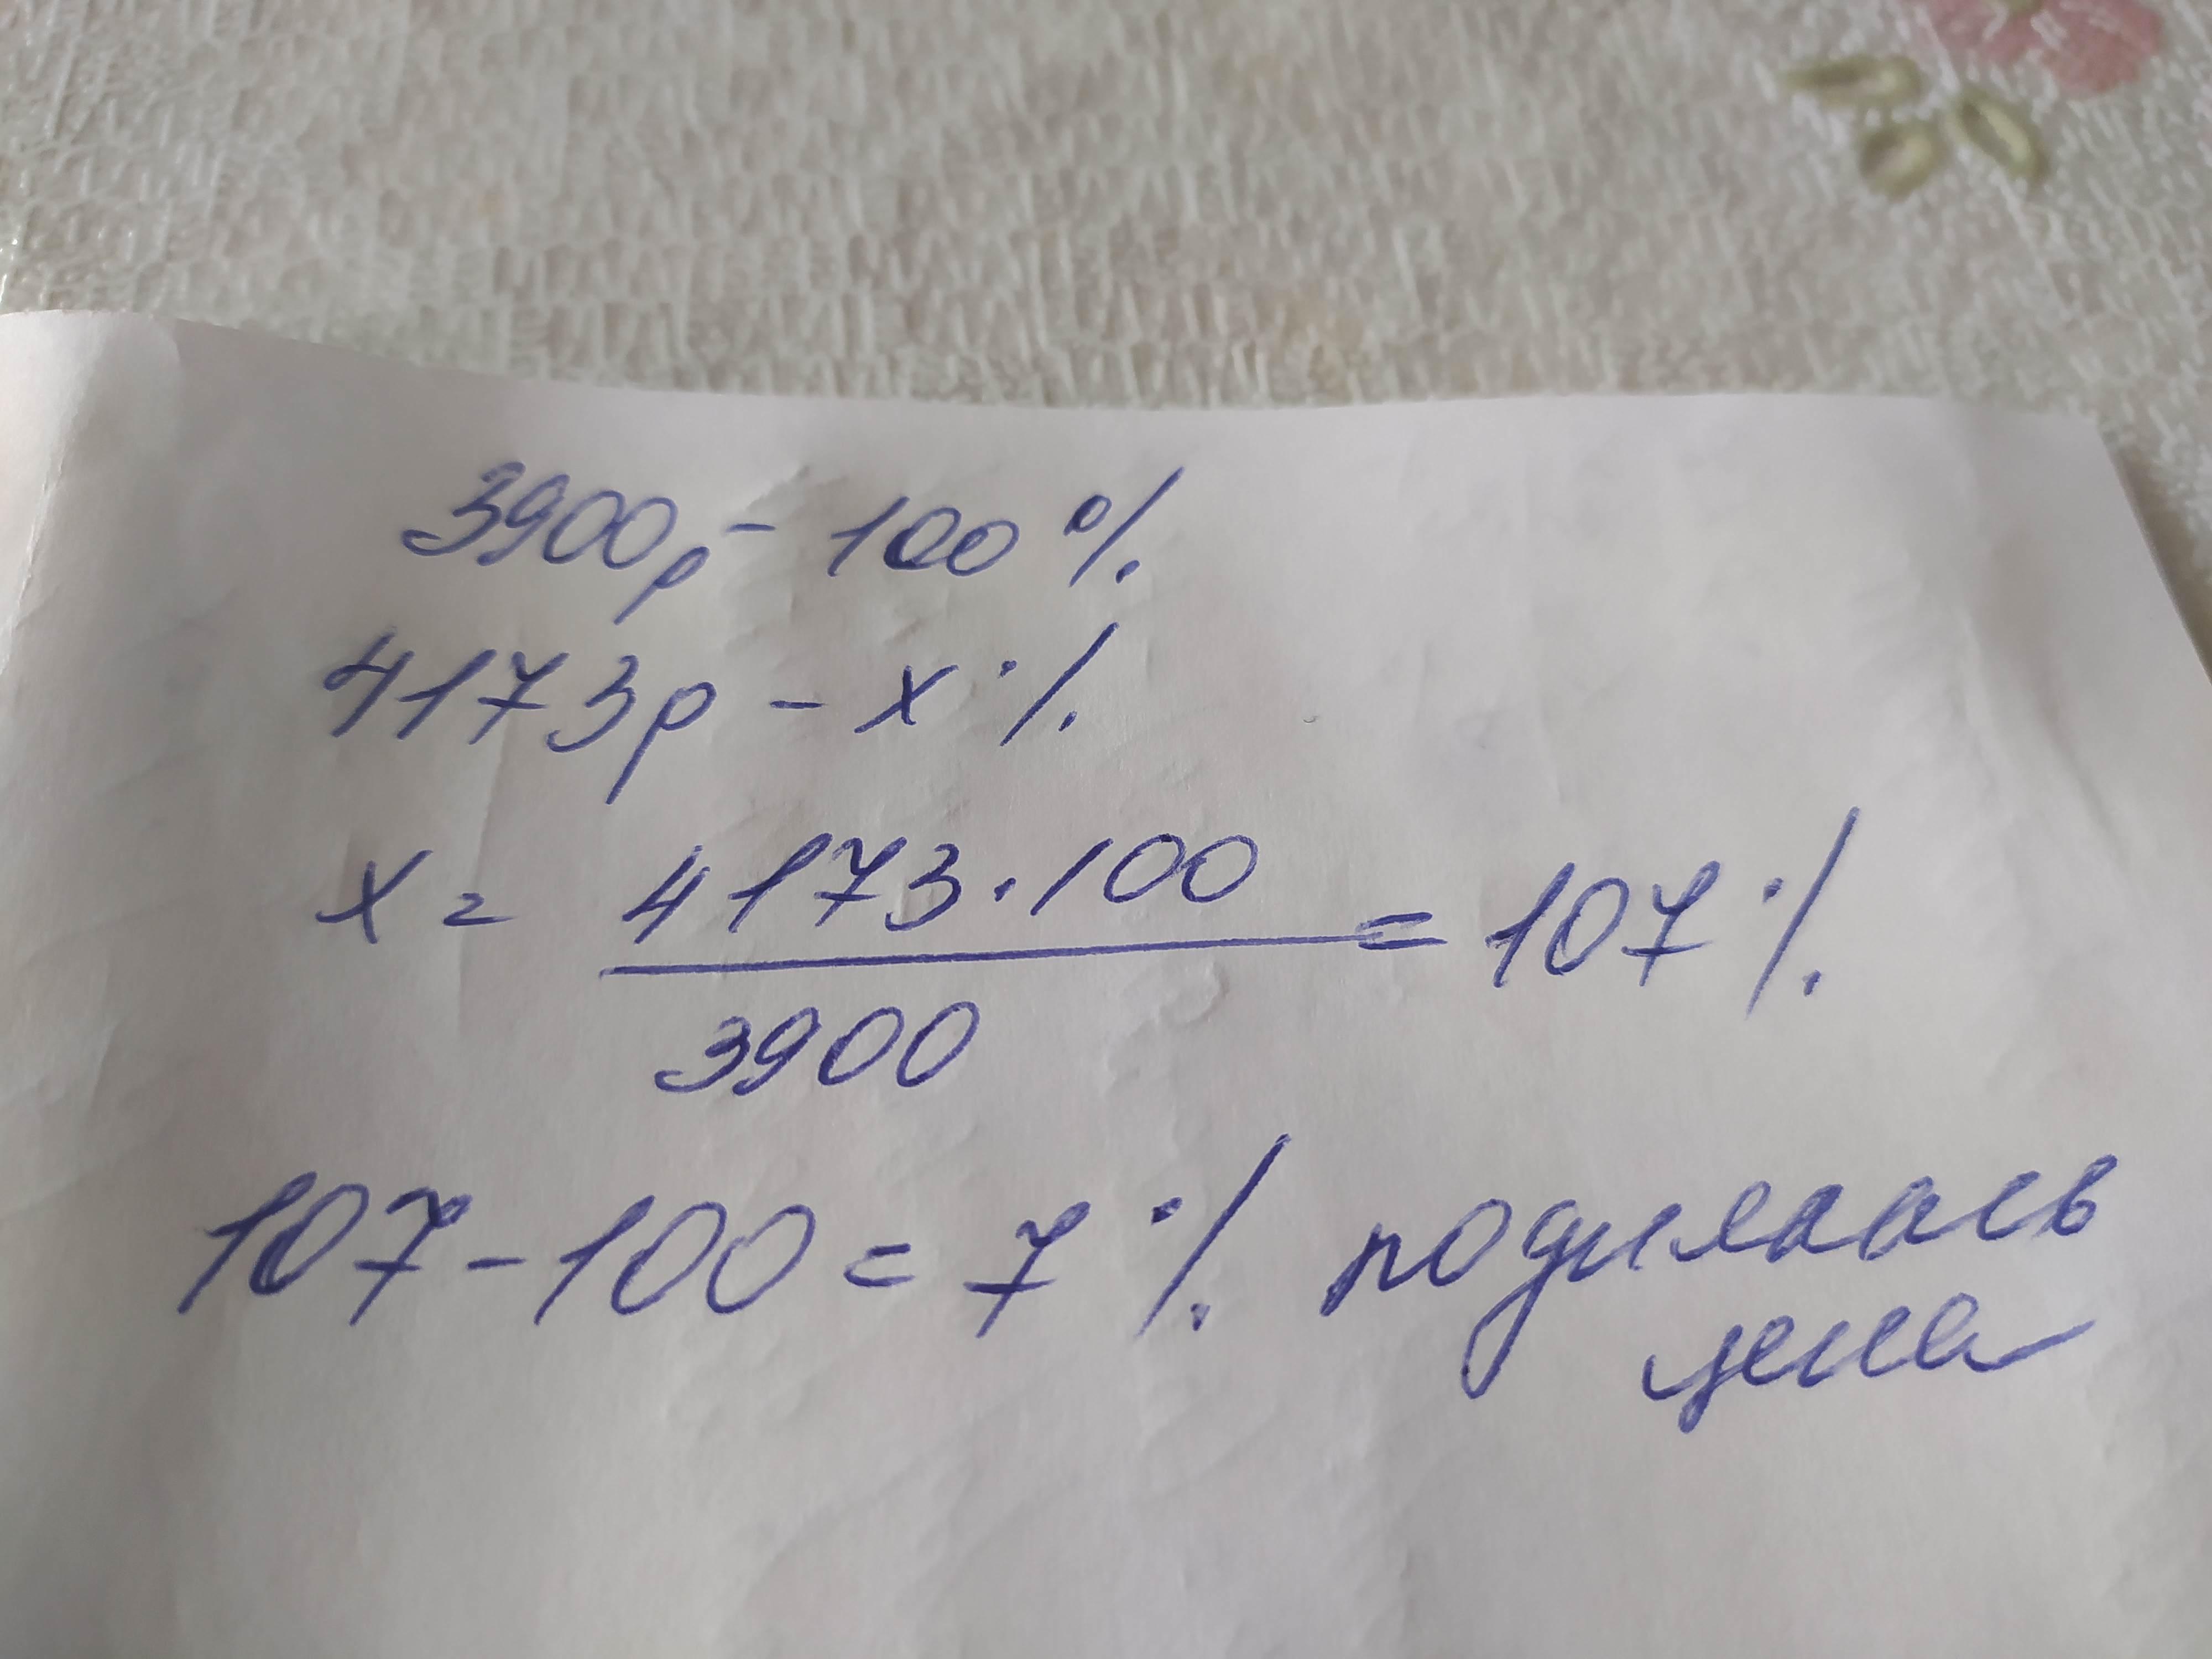 3900р - 100 %
4173р - х %
х = 4173 · 100 / 3900 = 107 %
107 - 100 = 7 % поднялась
цена